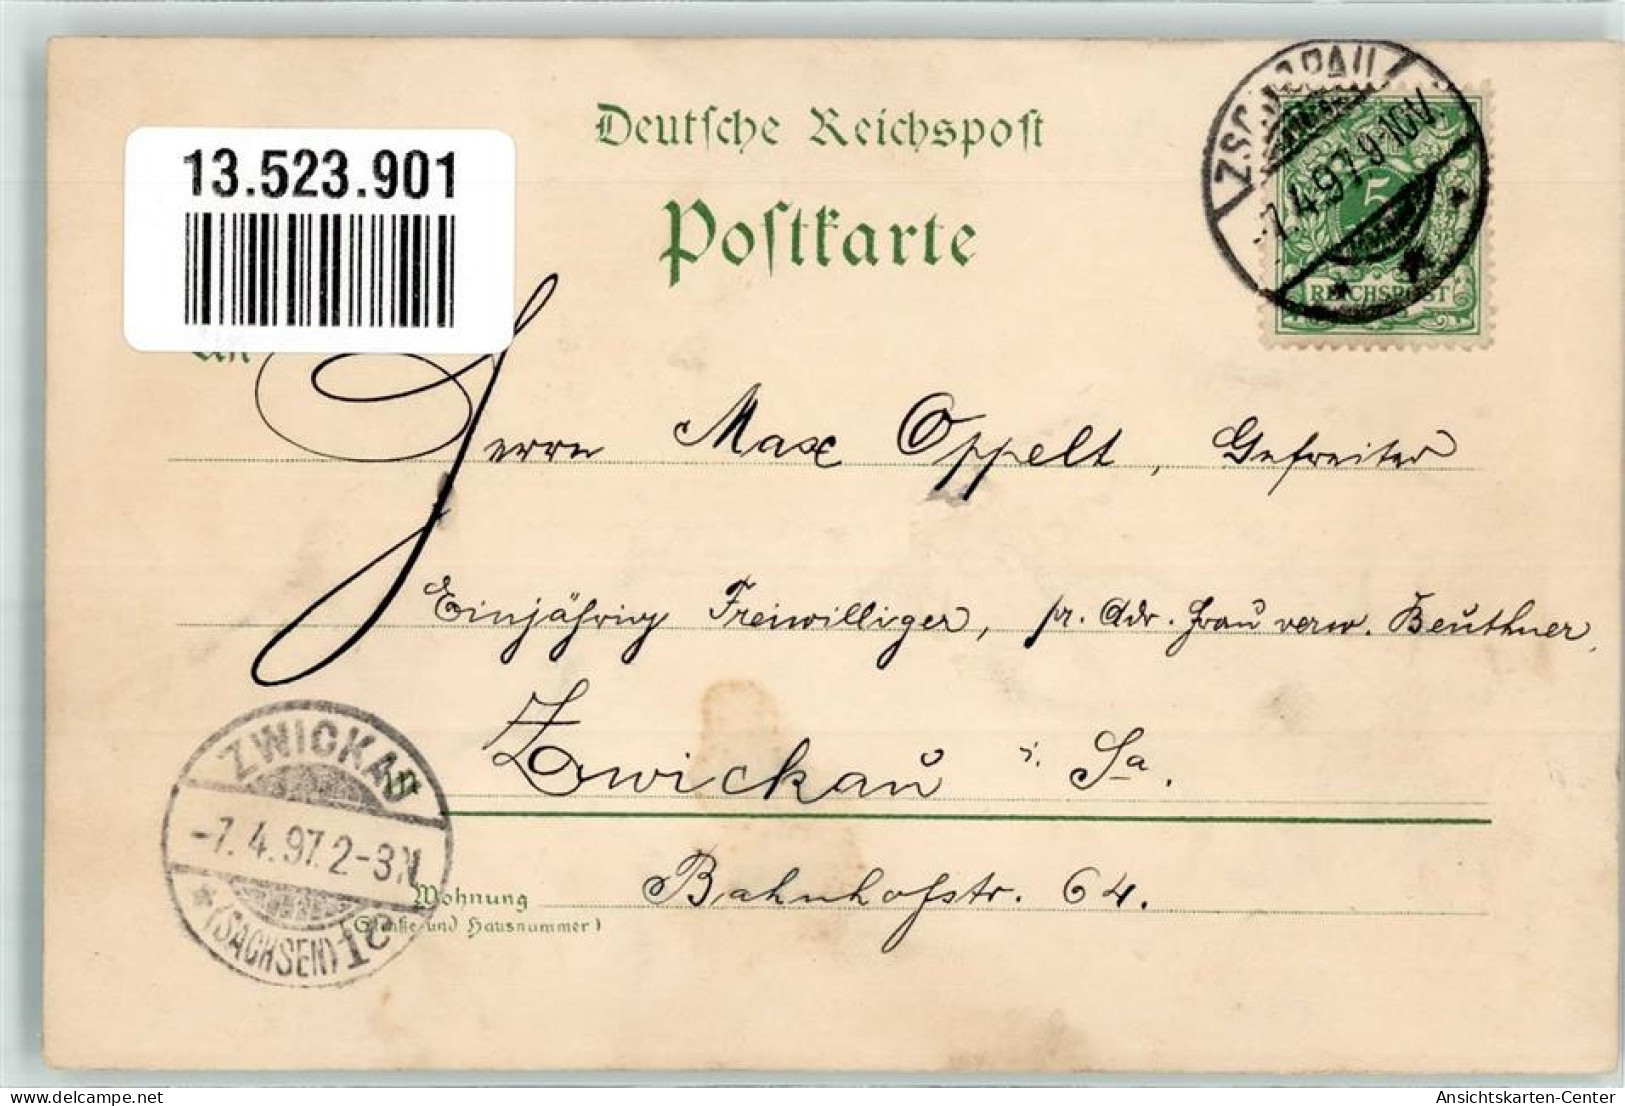 13.523.901
Deutsche Reichspost
Postkarte
ZSCHOPAU
-7.4.97.9-10V.
5
REICHSPOST
An
Herrn Max Oppelt, Gefreiter
Einjährig Freiwilliger, pr. Adr. Frau verw. Beuthner,
Zwickau i. Sa.
in
ZWICKAU
-7.4.97.2-3N.
(SACHSEN)
Wohnung
Bahnhofstr. 64.
(Straße und Hausnummer)
Ansichtskarten-Center